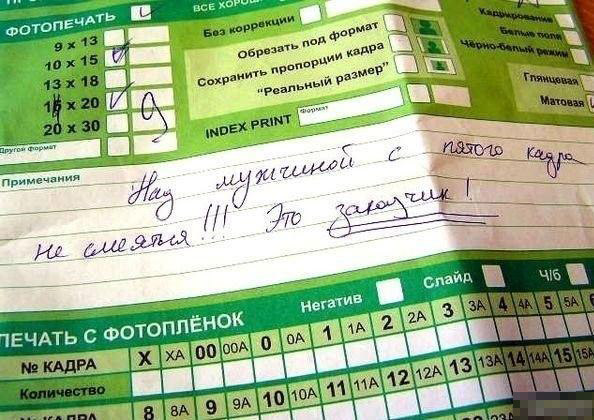 ФОТОПЕЧАТЬ
9 x 13
10 x 15
13 x 18
15 x 20
9
20 x 30
Другой формат
Без коррекции
Обрезать под формат
Сохранить пропорции кадра
"Реальный размер"
INDEX PRINT
Формат
Кадрирование
Белые поле
Чёрно-белый режим
Глянцевая
Матовая
Примечания
Над мужчиной с пятого кадра
не смеяться!!! Это заказчик!
ПЕЧАТЬ С ФОТОПЛЁНОК
Негатив
Слайд
Ч/б
№ КАДРА X XA 00 00A 0 0A 1 1A 2 2A 3 3A 4 4A 5 5A 6
Количество
8 8A 9 9A 10 10A 11 11A 12 12A 13 13A 14 14A 15 15A